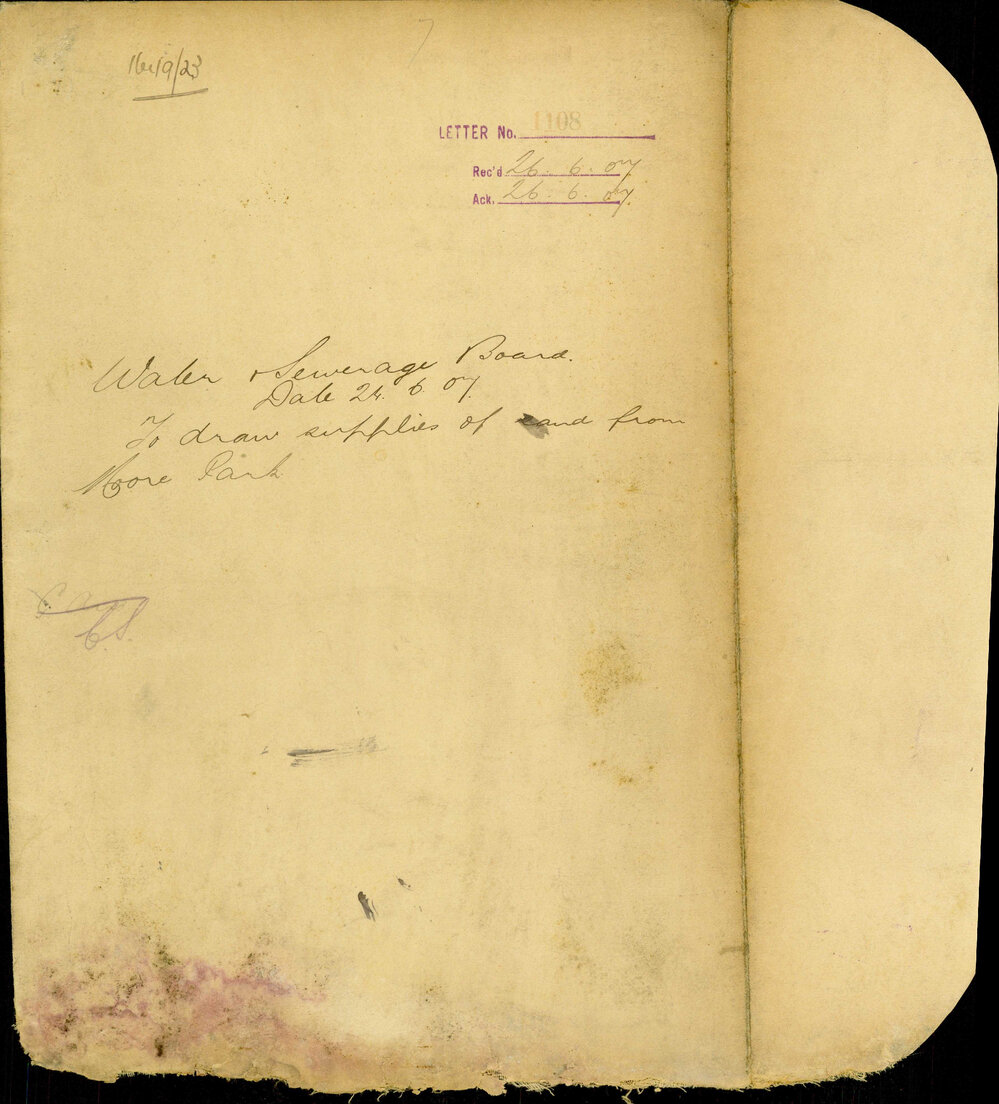 LETTER No. 1108
Rec'd 26. 6. 07
Ack. 26. 6. 07
Water & Sewerage Board.
Date 24. 6. 07.
To draw supplies of sand from
Moore Park
C.S.